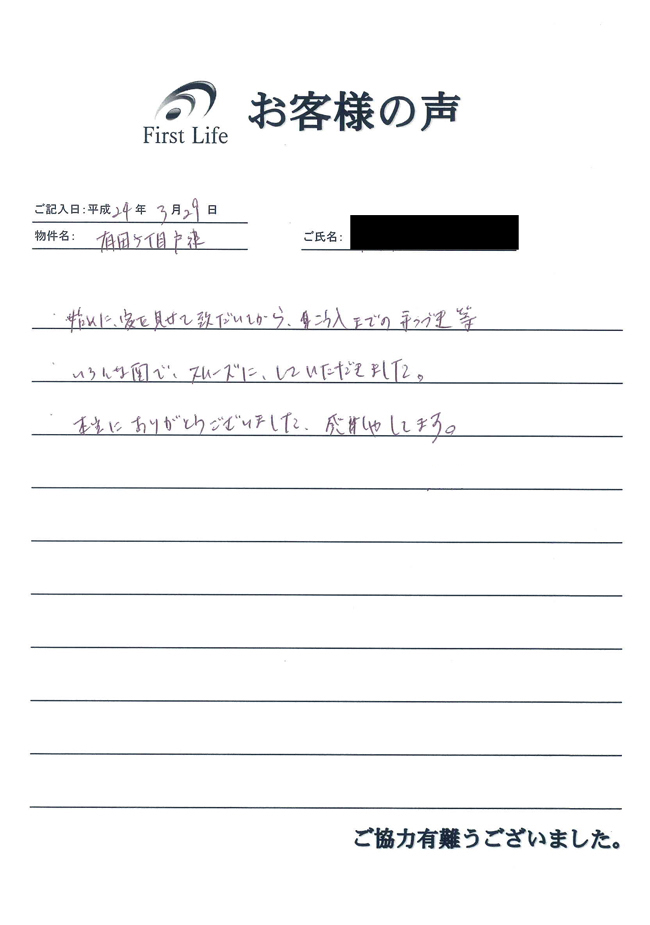 First Life
お客様の声
ご記入日:平成24年 3月29日
物件名: 有田5丁目戸建
ご氏名:
始めに、家を見せて致だいてから、購入までの手つづき等
いろんな面で、スムーズに、していただきました。
本当にありがとうございました、感謝してます。
ご協力有難うございました。